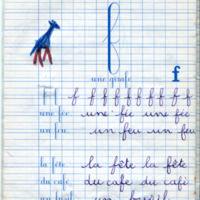 f
une girafe
f
f f f f f f f f f f f
une fée une fée une fée
un feu un feu un feu
la fête la fête la fête
du café du café du café
un